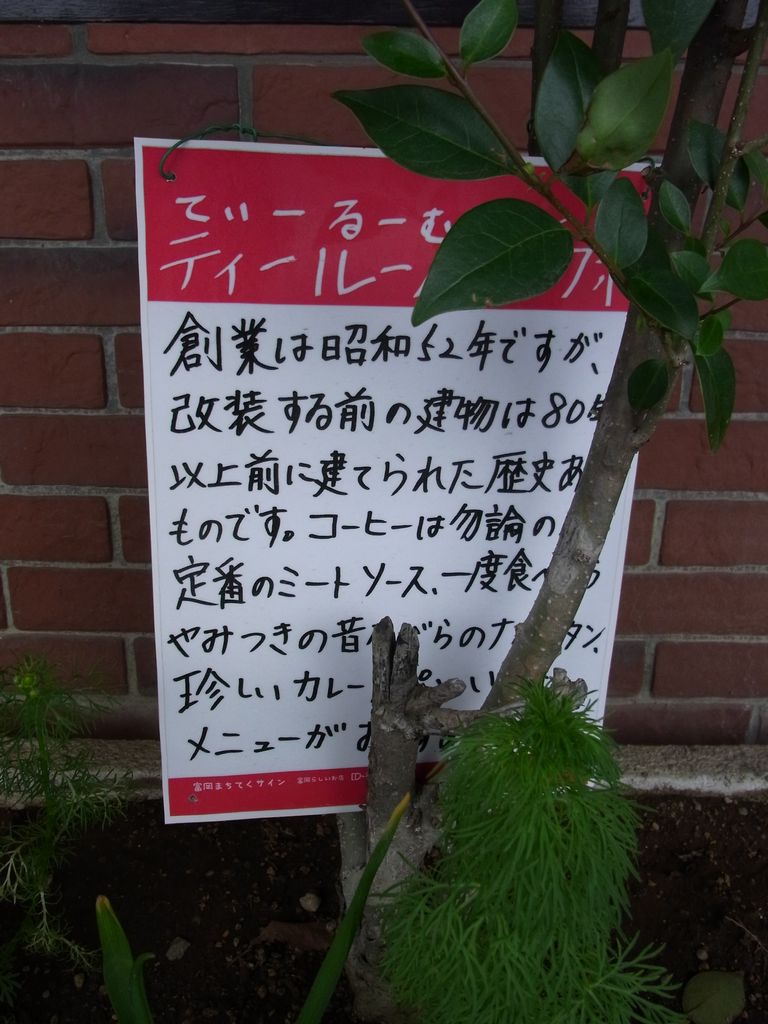 てぃーるーむ
ティールー フォ
創業は昭和52年ですが、
改装する前の建物は80年
以上前に建てられた歴史あ
ものです。コーヒーは勿論の
定番のミートソース、一度食べ
やみつきの昔ながらのナ タン、
珍しいカレー い
メニューがお
富岡まちてくサイン 富岡らしいお店